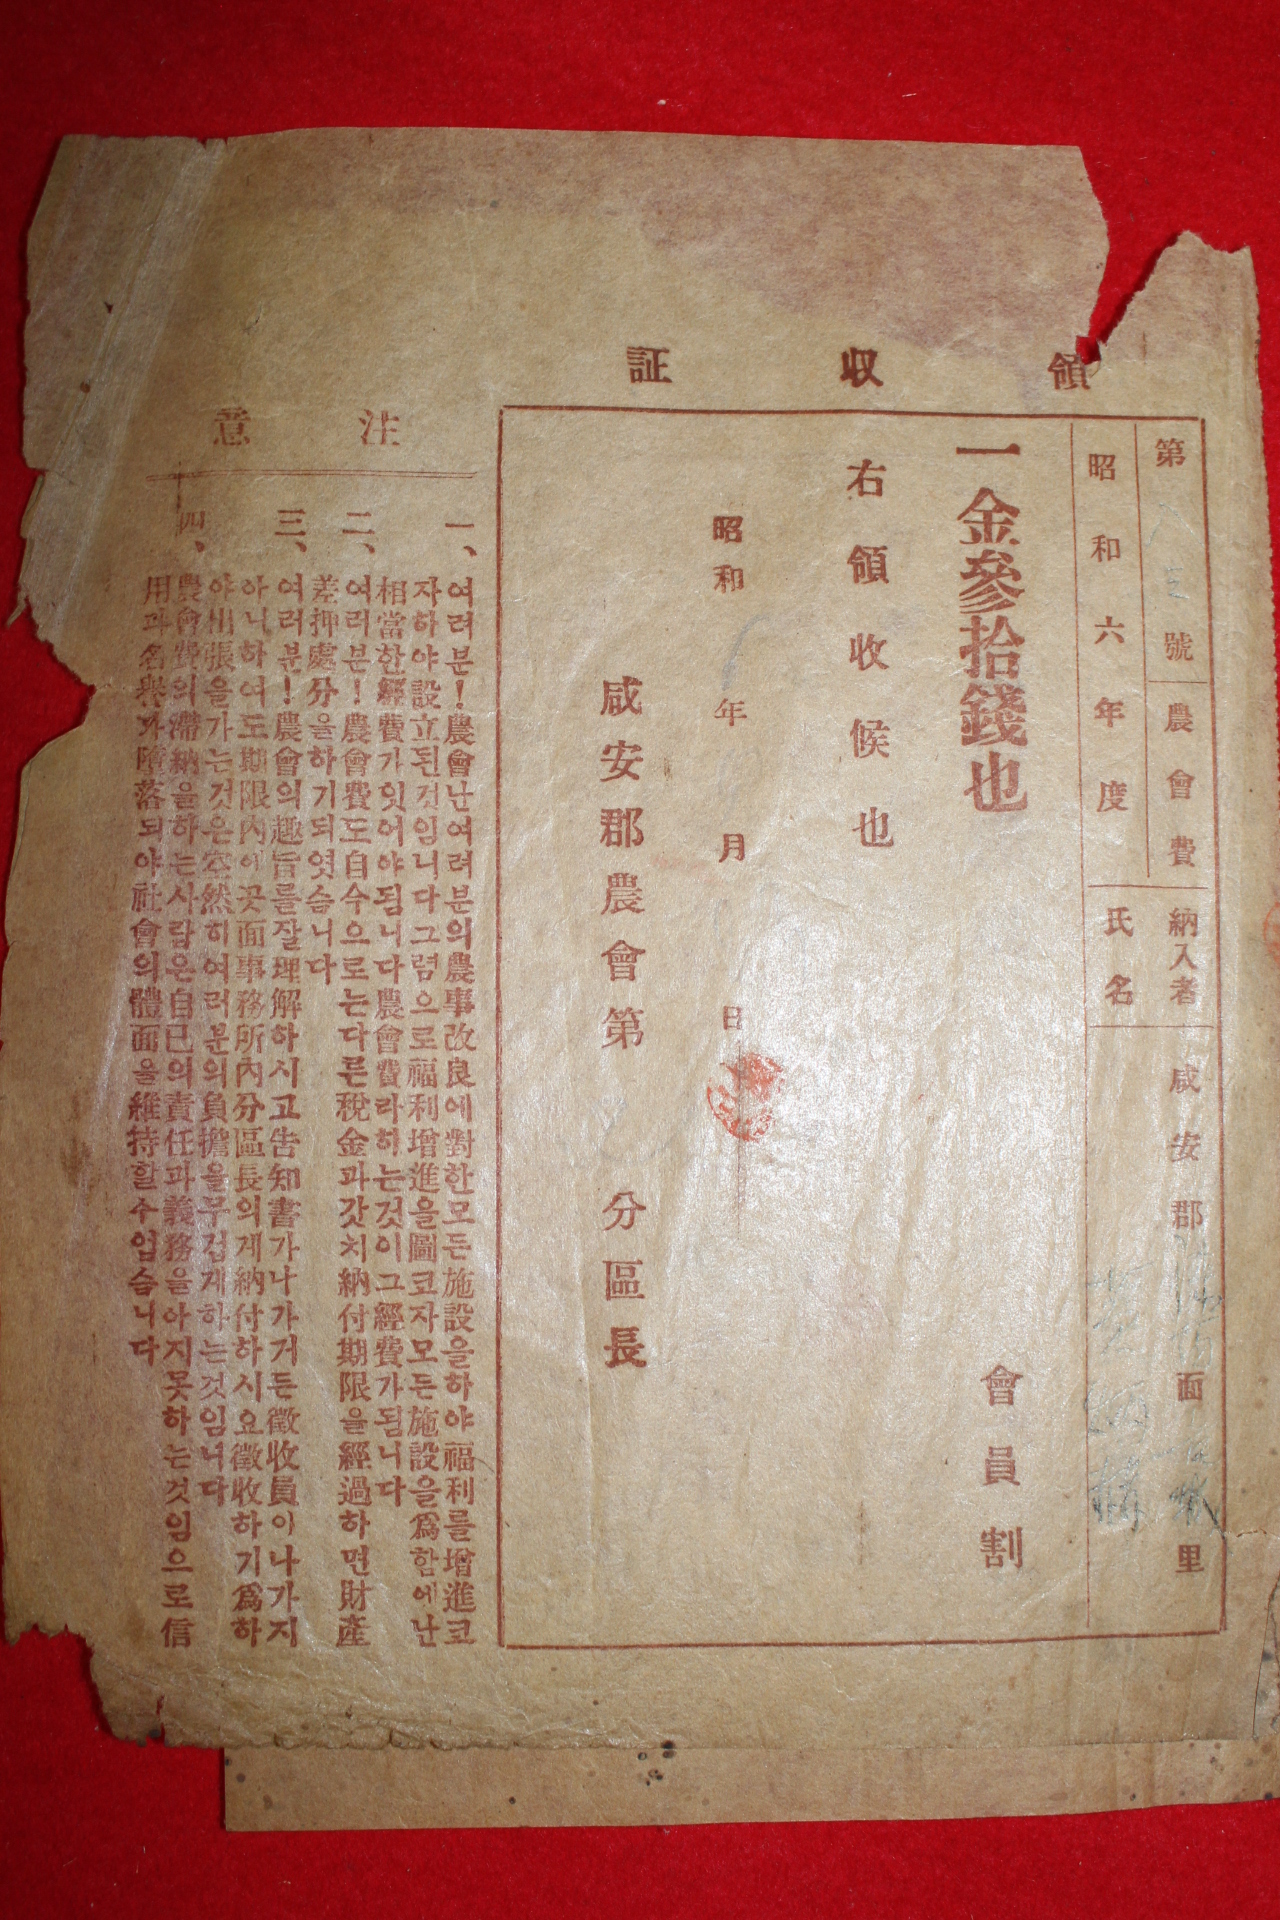 領收証
第八三號 農會費 納入者 咸安郡 面 里
昭和六年度 氏名
一金參拾錢也 會員割
右領收候也
昭和 年 月 日
咸安郡農會第 分區長
注意
一、여러분!農會난여러분의農事改良에對한모든施設을하야福利를增進코
자하야設立된것임니다그럼으로福利增進을圖코자모든施設을爲함에난
相當한經費가잇어야됨니다農會費라하는것이그經費가됨니다
二、여러분!農會費도自수으로는다른稅金과갓치納付期限을經過하면財產
差押處分을하기되엿슴니다
三、여러분!農會의趣旨를잘理解하시고告知書가나가거든徵收員이나가지
아니하여도期限內에곳面事務所內分區長의게納付하시요徵收하기爲하
야出張을가는것은空然히여러분의負擔을무겁게하는것임니다
四、農會費의滯納을하는사람은自己의責任과義務을아지못하는것임으로信
用과名譽가墮落되야社會의體面을維持할수업슴니다